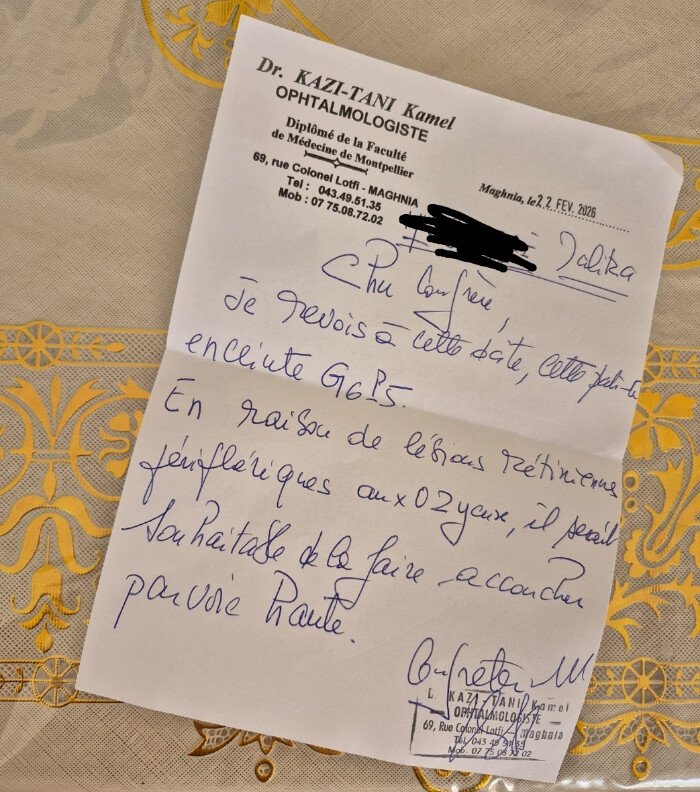 Dr. KAZI-TANI Kamel
OPHTALMOLOGISTE
Diplômé de la Faculté
de Médecine de Montpellier
69, rue Colonel Lotfi - MAGHNIA
Tel : 043.49.51.35
Mob : 07 75.08.72.02
Maghnia, le 22 FEV. 2026
Cher Confrère,
Je revois à cette date, cette patiente
enceinte G6P5.
En raison de lésions rétiniennes
périphériques aux 02 yeux, il serait
souhaitable de la faire accoucher
par voie haute.
KAZI-TANI Kamel
OPHTALMOLOGISTE
69, Rue Colonel Lotfi - Maghnia
Tél. 043 49 51 35